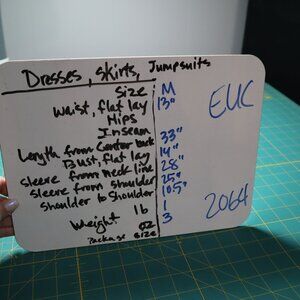 Dresses, skirts, Jumpsuits
Size M
Waist, flat lay 13"
Hips
Inseam
Length from Center back 33"
Bust, flat lay 14"
Sleeve from Neck line 28"
sleeve from shoulder 25"
shoulder to shoulder 10.5"
Weight lb 1
oz 3
Package size
EUC
2064